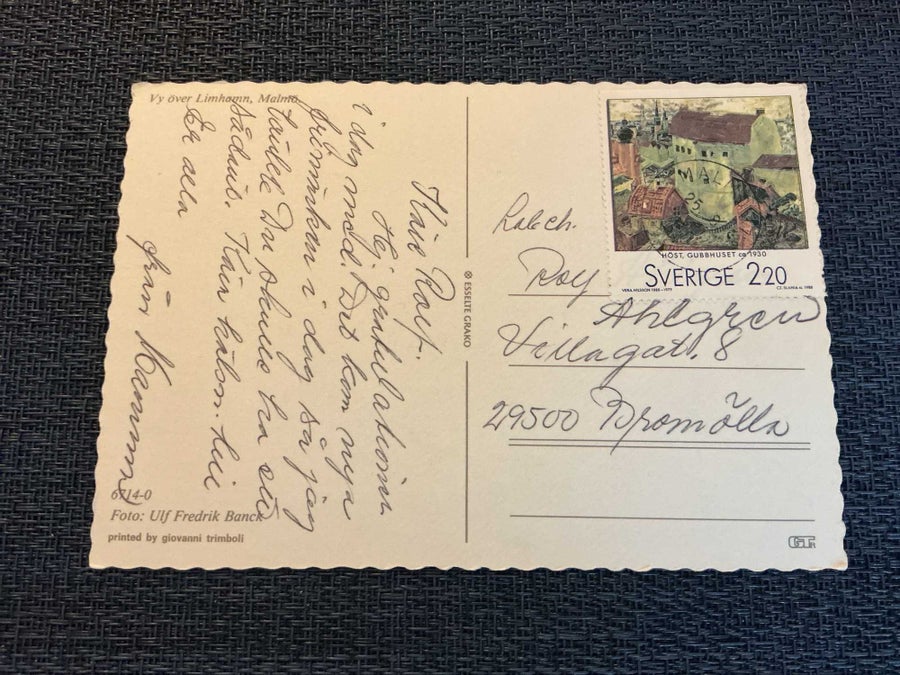 Vy över Limhamn, Malmö
Käre Rolf.
Hej gratulationer
i dag också. Det kom nya
frimärken i dag så jag
tänkte Du skulle ha ett
sådant. Kära hälsn. till
Er alla
från Mamma
6714-0
Foto: Ulf Fredrik Banck
printed by giovanni trimboli
© ESSELTE GRAKO
MAL
25
HÖST, GUBBHUSET ca 1930
SVERIGE 220
VERA NILSSON 1888-1979
CZ. SLANIA sc. 1988
Rolf
Ahlgren
Villagat. 8
29500 Bromölla